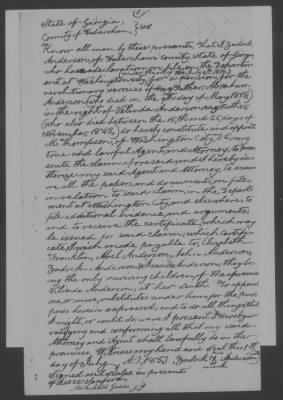 State of Georgia,
County of Habersham, } ss
Know all men by these presents, that I Zadock
Anderson, of Habersham County, State of Georgia
who has a declaration on file in the Departm
ent at Washington City, for a pension, for the
revolutionary services of his father,
Anderson (who died on the 9th day of May 1815)
in the right of Anderson, my Mother
(who also died between the 15th and 25 days of
November, 1849), do hereby constitute and appoint
M Thompson, of Washington City, D.C. my
true and lawful Agent and Attorney, to prose
cute the claim aforesaid, and I hereby au
thorize my said Agent and Attorney, to exam
ine all the papers and documents on file
in relation to said claim, in the Depart
ment at Washington City, and elsewhere; to
file additional evidence and arguments
and to receive the certificate which may
be issued for said claim, which certifi
cate I wish made payable to, Elizabeth
Franklin, Abel Anderson, John Anderson,
Zadock Anderson & Anderson, they be
ing the only surviving children, of the aforesaid
Anderson, at her death. To appoint
one, or more, substitutes under him for the pur
poses herein expressed, and to do all things that
I might, or could do, were I present. Hereby
ratifying and confirming all that my said
Attorney and Agent shall lawfully do in the
premises. Witness my hand and seal this
day of July, A.D. 1853. Zadock his X mark Anderson
Signed and sealed in presents
of us